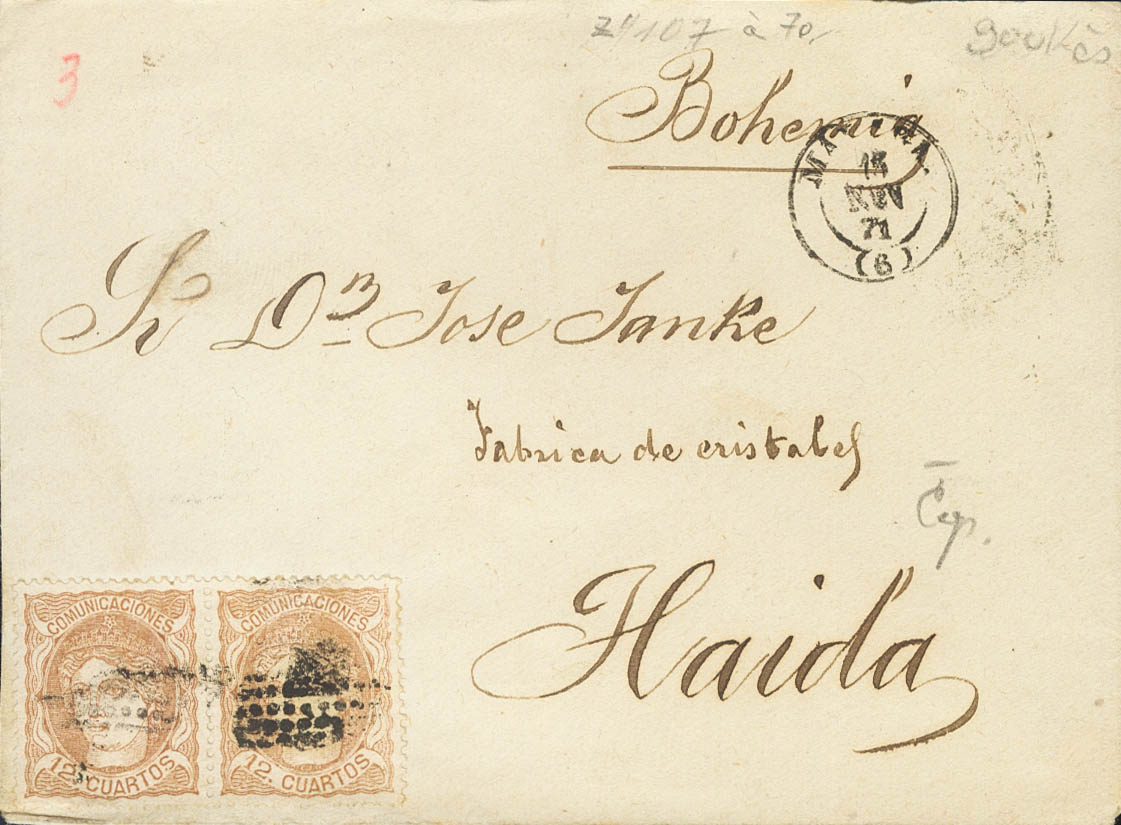 3
à 70,
Bohemia
MALAGA.
15
NOV
71
(6)
Sr Dn Jose Janke
Fabrica de cristales
Haida
COMUNICACIONES
12. CUARTOS
COMUNICACIONES
12. CUARTOS